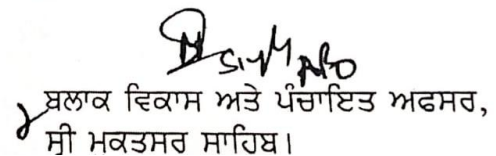 ਬਲਾਕ ਵਿਕਾਸ ਅਤੇ ਪੰਚਾਇਤ ਅਫਸਰ,
ਸ੍ਰੀ ਮੁਕਤਸਰ ਸਾਹਿਬ।